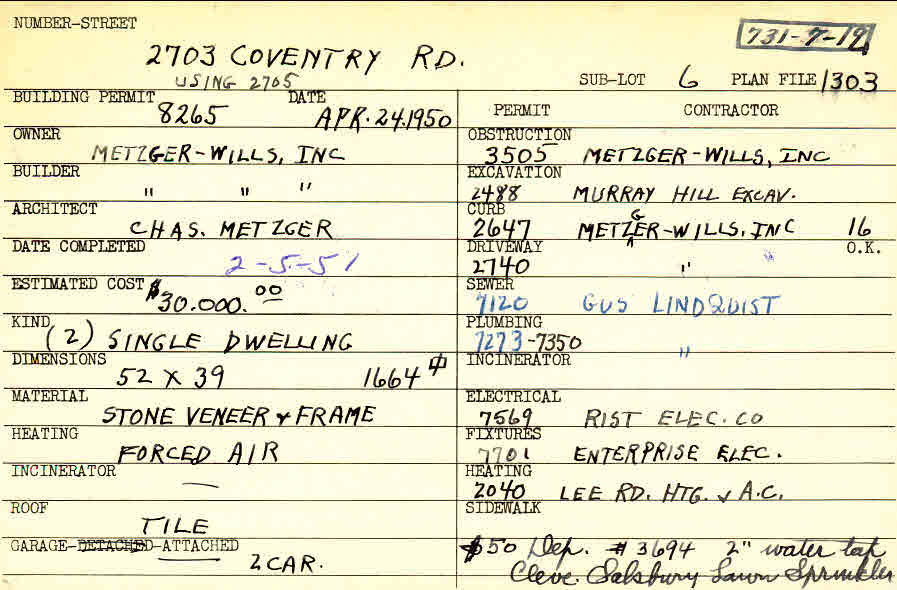 NUMBER-STREET
731-7-19
2703 COVENTRY RD.
USING 2705
SUB-LOT 6 PLAN FILE 1303
BUILDING PERMIT DATE
8265 APR. 24.1950
OWNER
METZGER-WILLS, INC
BUILDER
" " "
ARCHITECT
CHAS. METZGER
DATE COMPLETED
2-5-51
ESTIMATED COST
$30.000.00
KIND
(2) SINGLE DWELLING
DIMENSIONS
52 X 39 1664
MATERIAL
STONE VENEER & FRAME
HEATING
FORCED AIR
INCINERATOR
—
ROOF
TILE
GARAGE-DETACHED-ATTACHED
2 CAR.
PERMIT CONTRACTOR
OBSTRUCTION
3505 METZGER-WILLS, INC
EXCAVATION
2488 MURRAY HILL EXCAV.
CURB
2647 METZGER-WILLS, INC 16
DRIVEWAY O.K.
2740 "
SEWER
7120 GUS LINDQUIST
PLUMBING
7273-7350 "
INCINERATOR
ELECTRICAL
7569 RIST ELEC. CO
FIXTURES
7701 ENTERPRISE ELEC.
HEATING
2040 LEE RD. HTG. & A.C.
SIDEWALK
$50 Dep. # 3694 2" water tap
Cleve. Salsbury Lawn Sprinkler